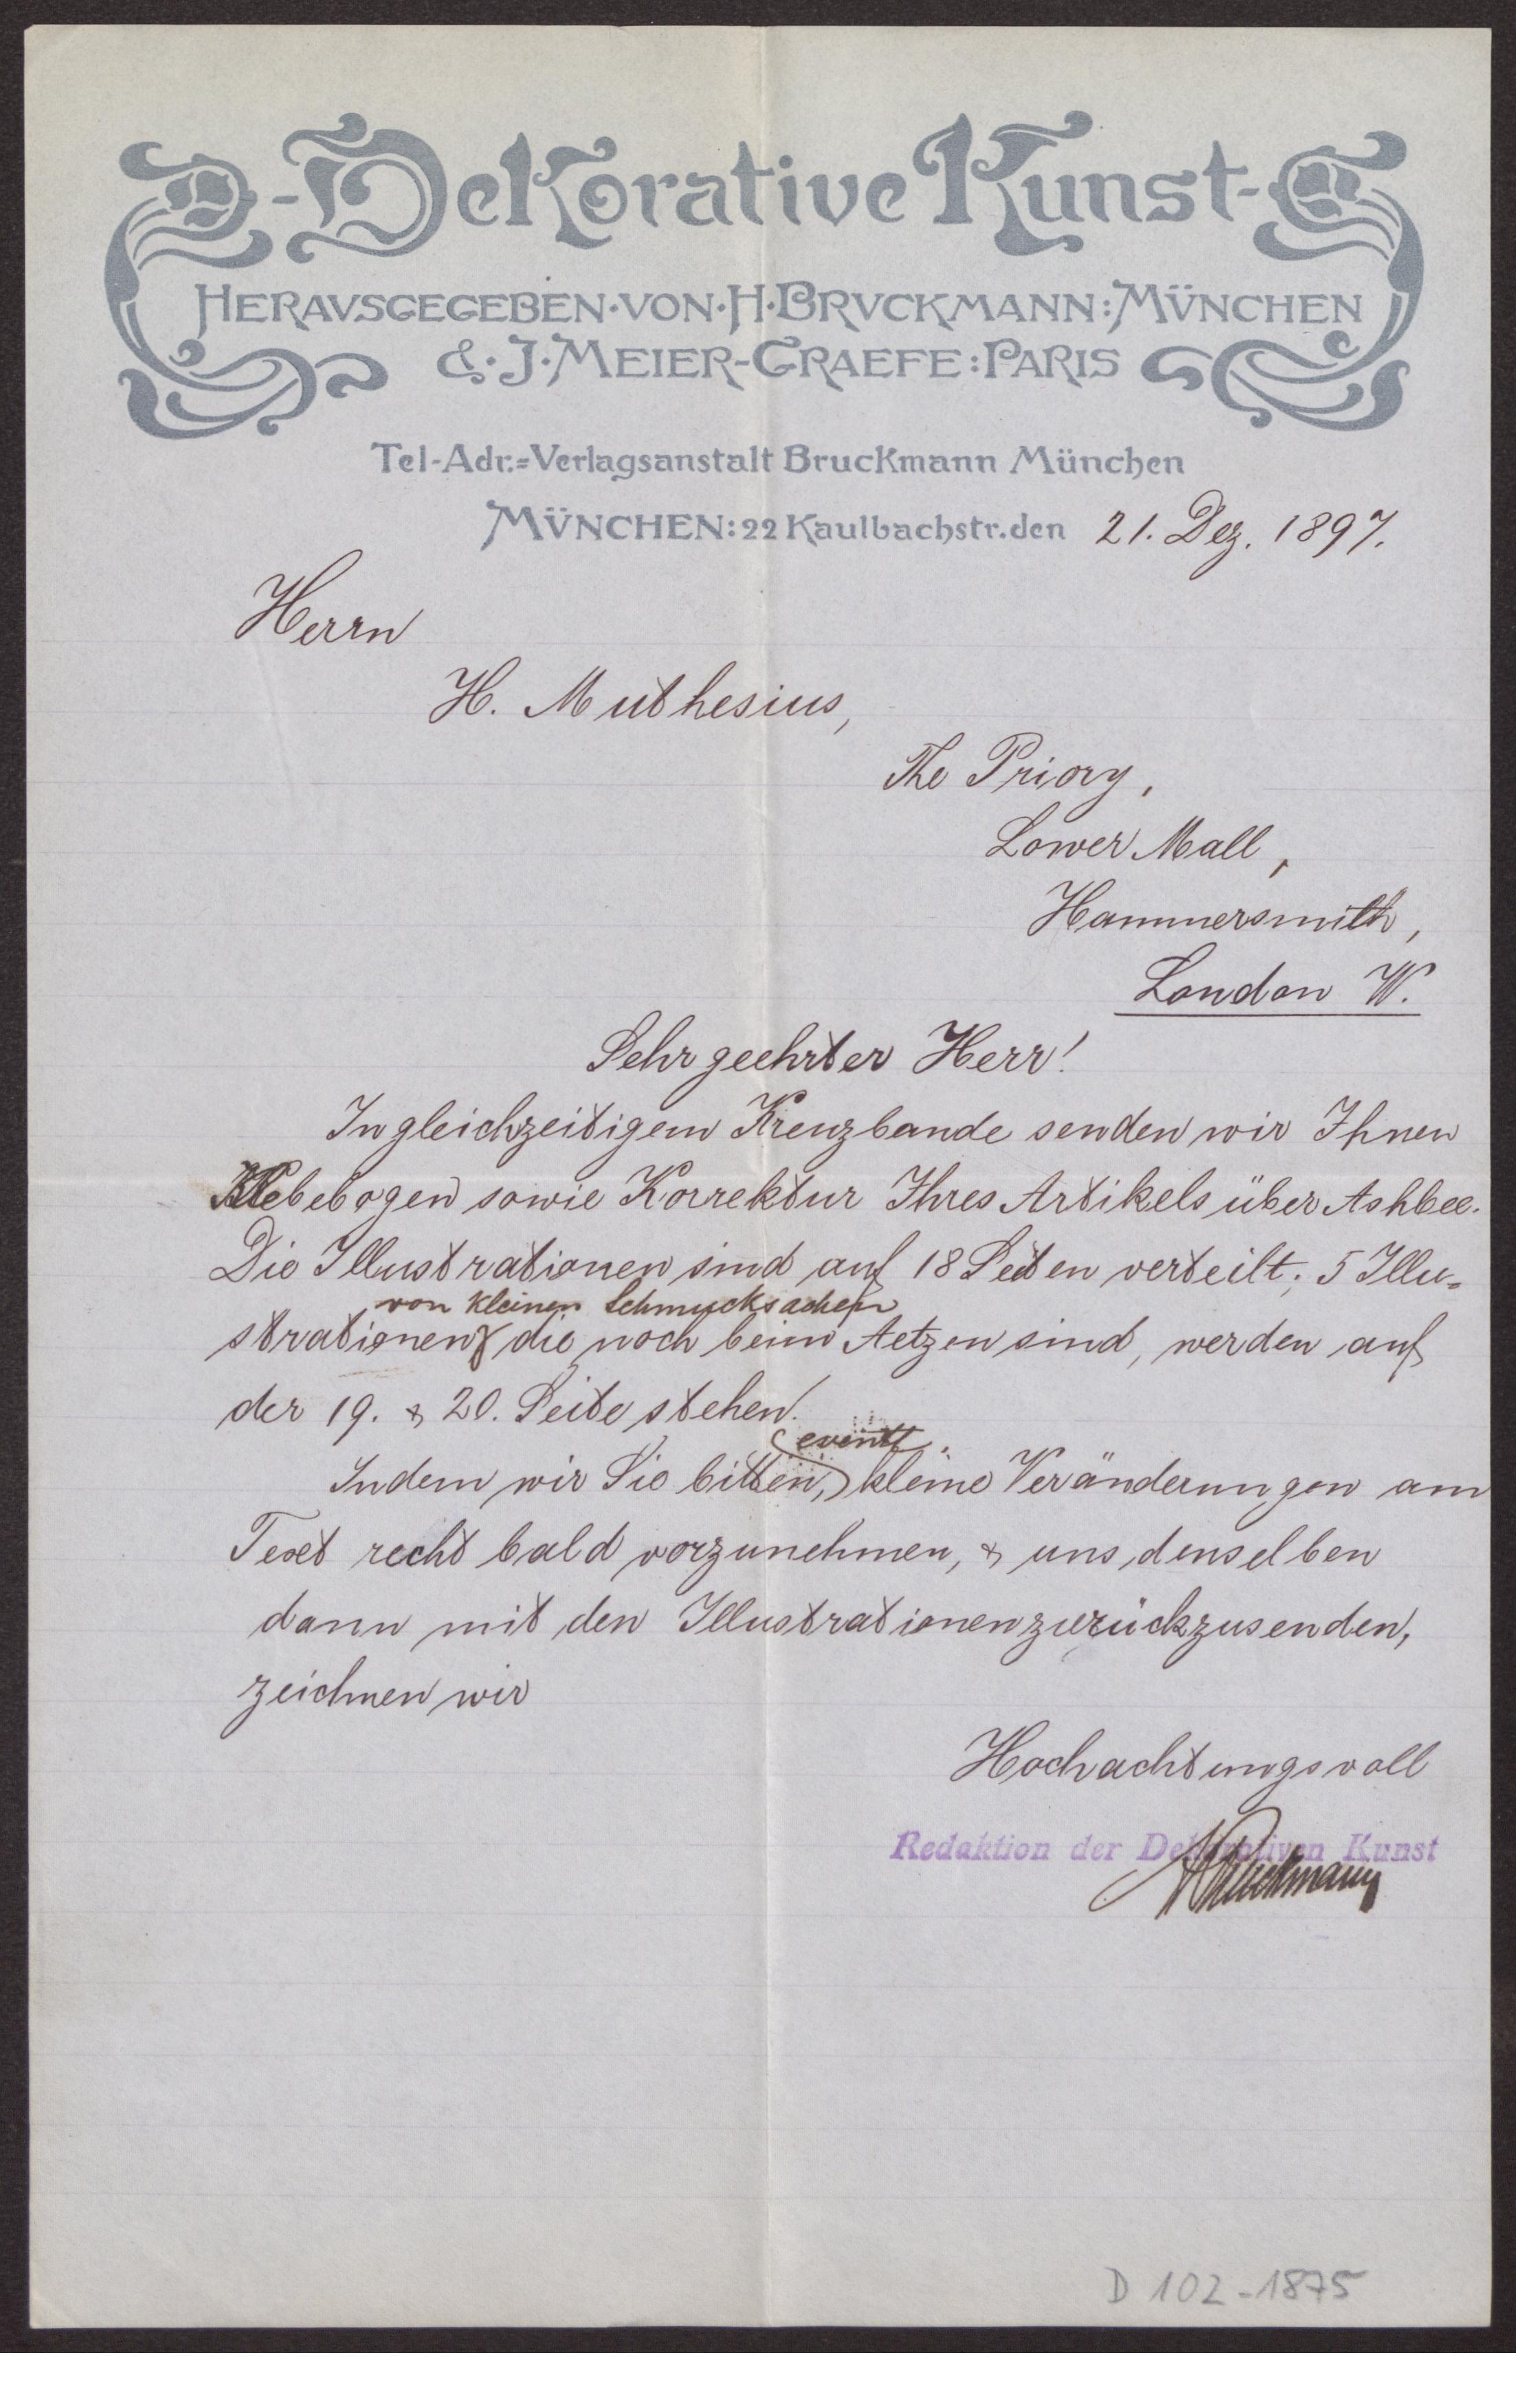 Dekorative Kunst
HERAVSGEGEBEN·VON·H·BRVCKMANN:MÜNCHEN
&·J·MEIER-GRAEFE:PARIS
Tel-Adr.=Verlagsanstalt Bruckmann München
MÜNCHEN:22 Kaulbachstr.den 21. Dez. 1897.
Herrn
H. Muthesius,
The Priory,
Lower Mall,
Hammersmith,
London W.
Sehr geehrter Herr!
In gleichzeitigem Kreuzbande senden wir Ihnen
Klebebogen sowie Korrektur Ihres Artikels über Ashbee.
Die Illustrationen sind auf 18 Seiten verteilt; 5 Illu=
von kleinen Schmucksachen
strationen, die noch beim Aetzen sind, werden auf
der 19. & 20. Seite stehen.
eventl.
Indem wir Sie bitten, kleine Veränderungen am
Text recht bald vorzunehmen, & uns denselben
dann mit den Illustrationen zurückzusenden,
zeichnen wir
Hochachtungsvoll
Redaktion der Dekorativen Kunst
HBruckmann
D 102-1875